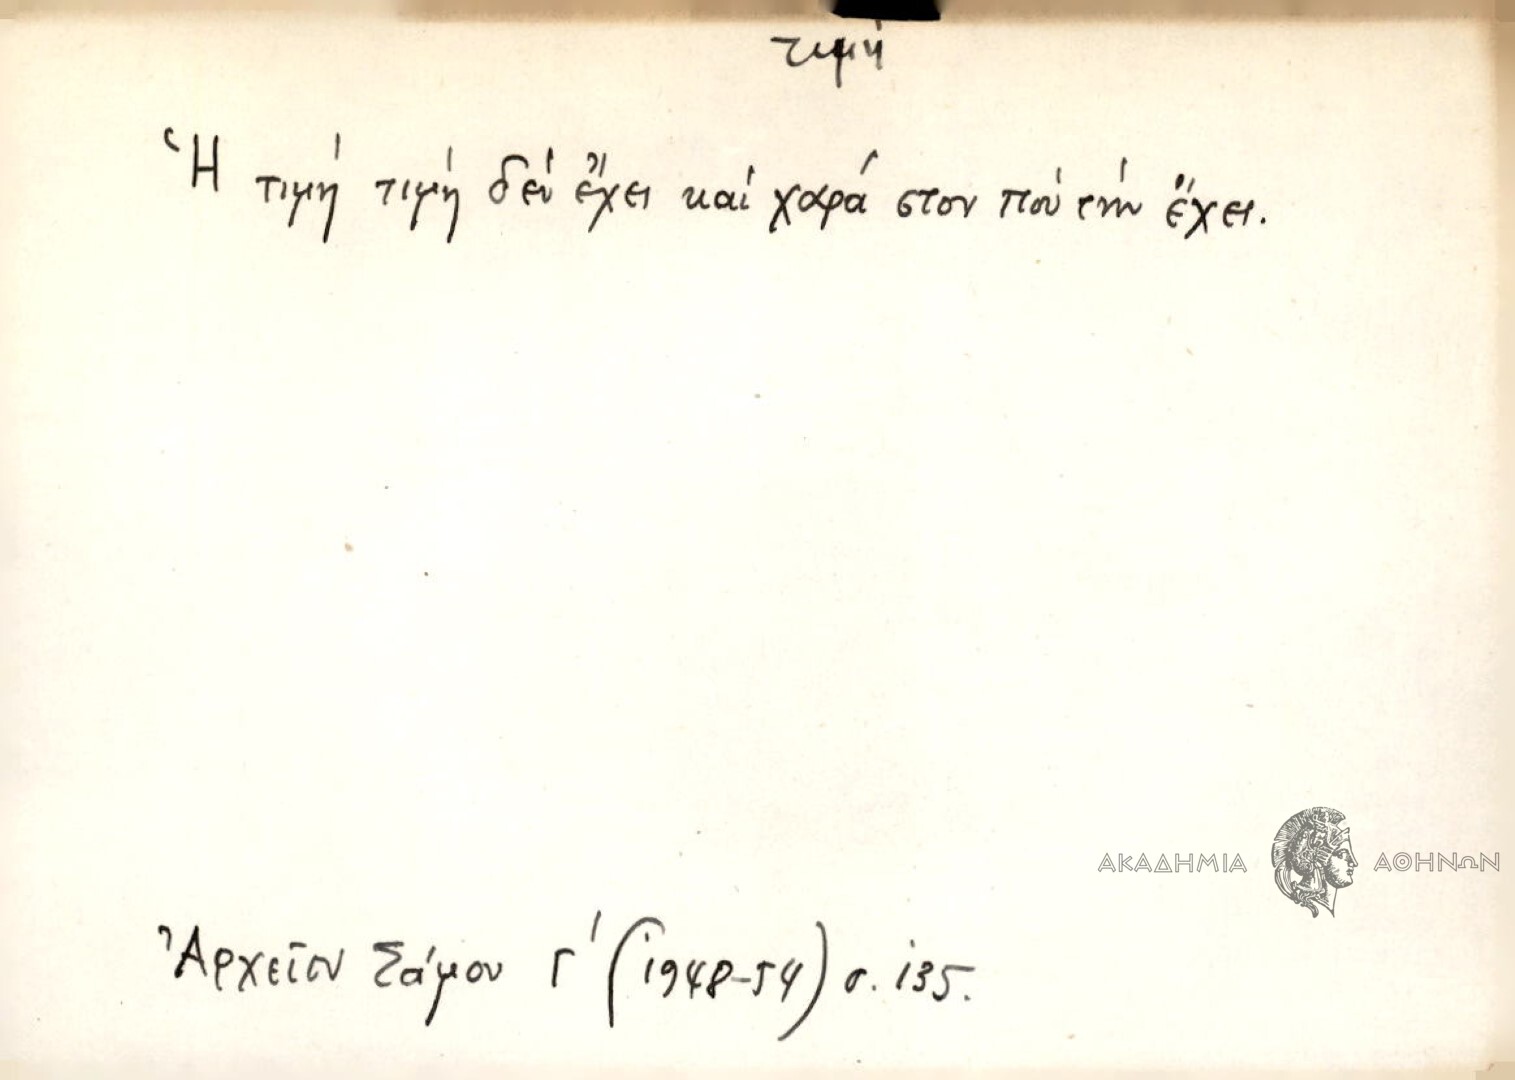 τιμή
Ἡ τιμή τιμή δέν ἔχει καί χαρά στον πού τήν ἔχει.
ΑΚΑΔΗΜΙΑ ΑΘΗΝΩΝ
Ἀρχεῖον Σάμου Γ' (1948-54) σ. 135.